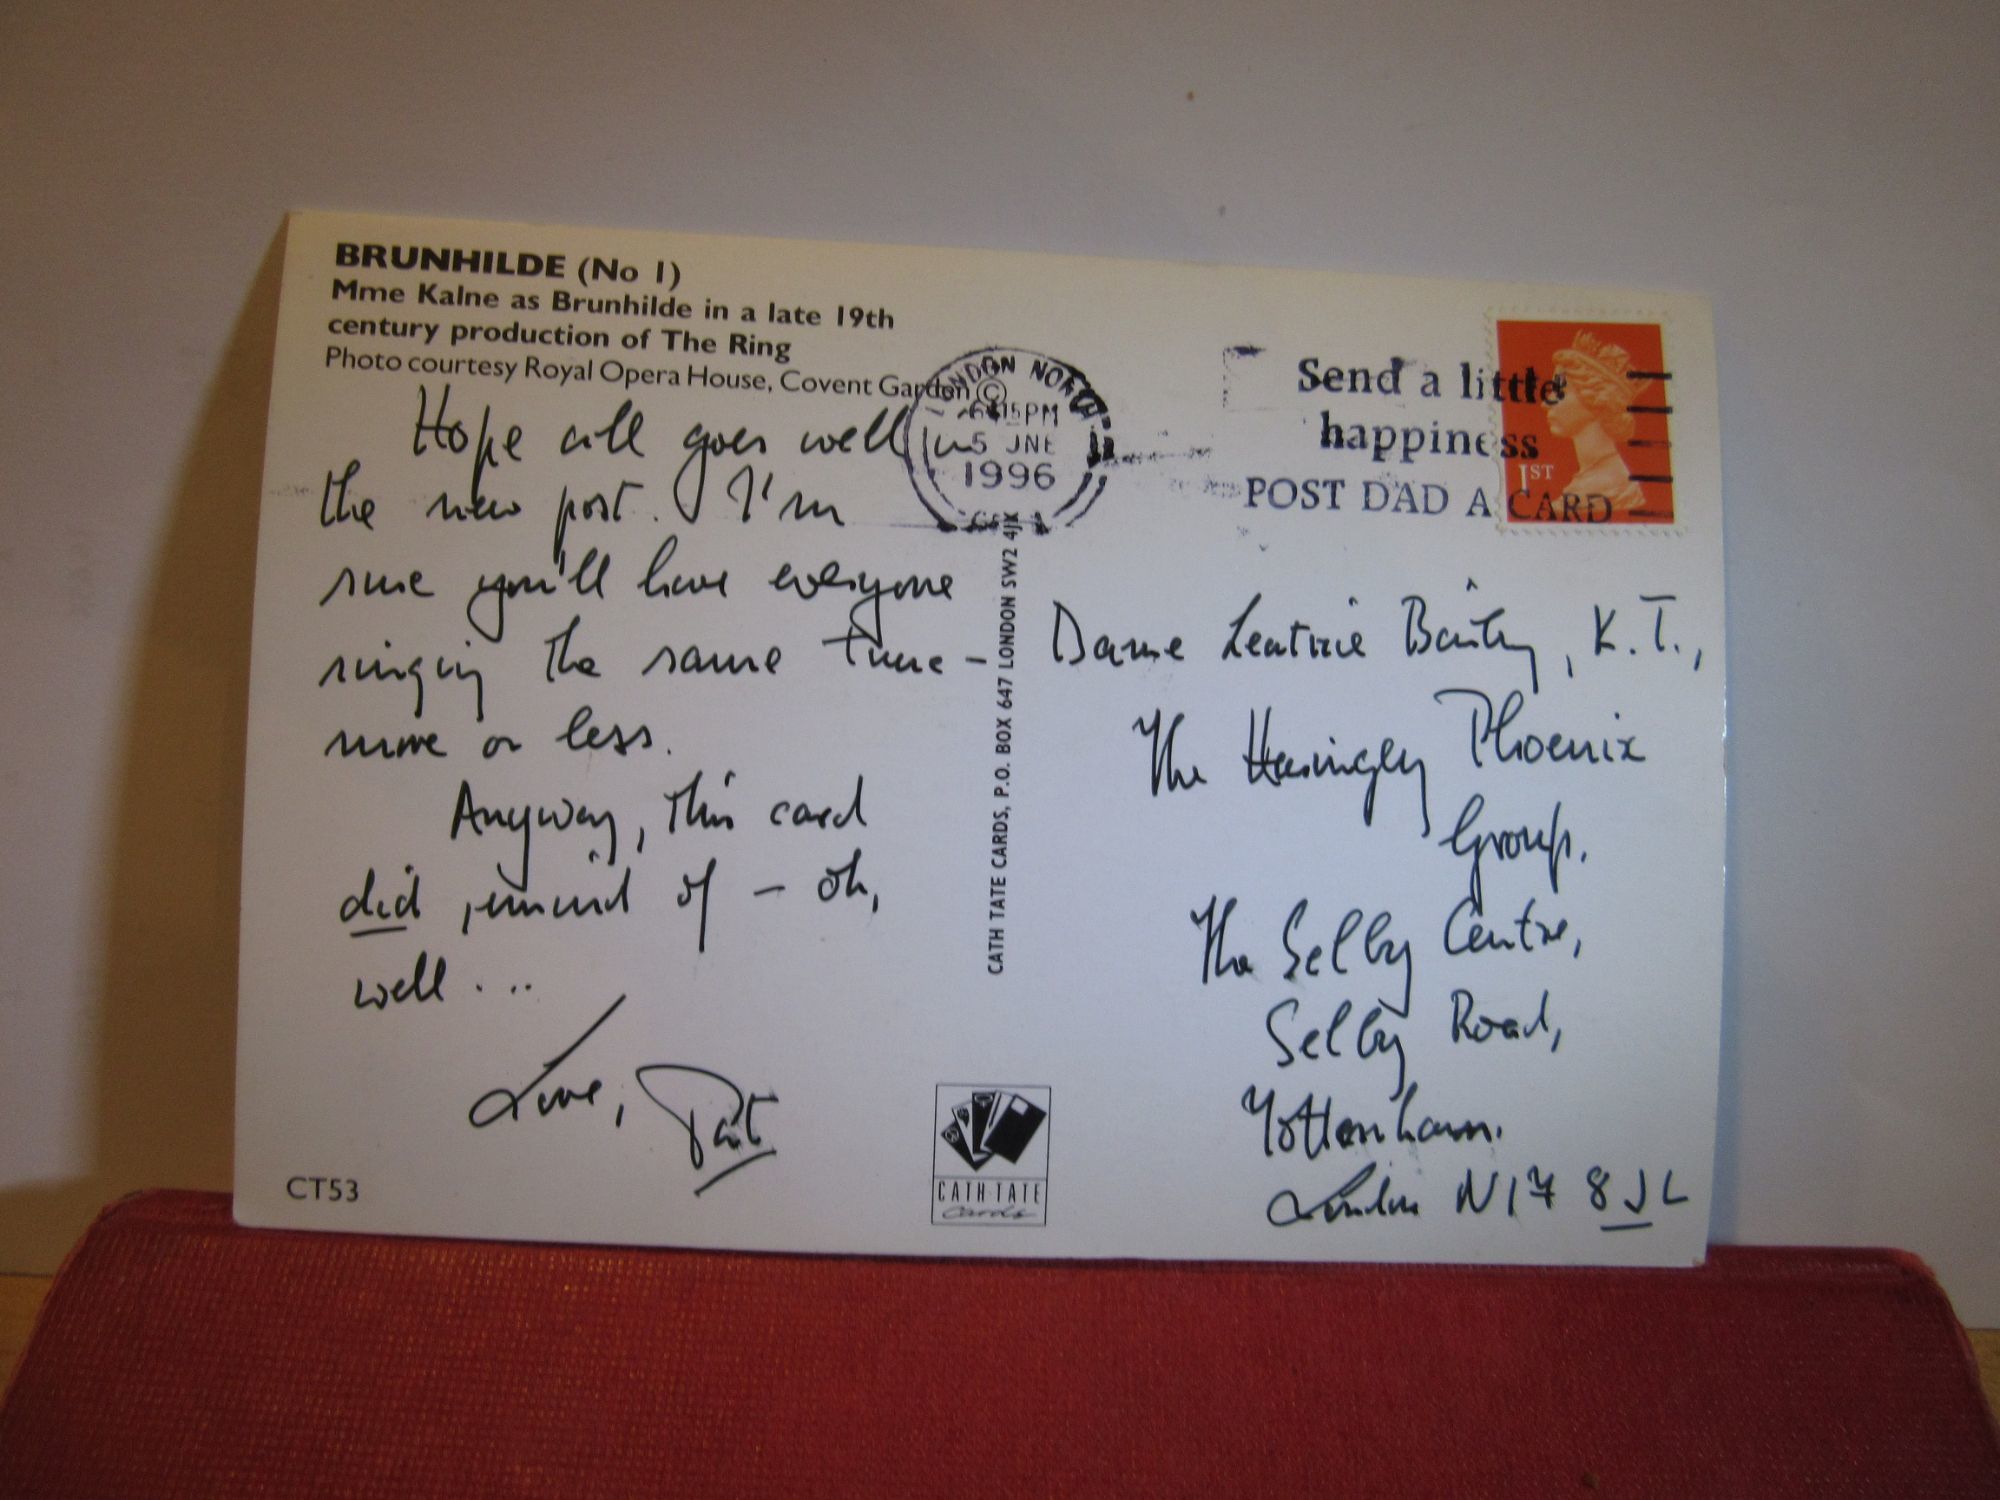 BRUNHILDE (No 1)
Mme Kalne as Brunhilde in a late 19th
century production of The Ring
Photo courtesy Royal Opera House, Covent Garden ©
Hope all goes well in
the new post. I'm
sure you'll have everyone
singing the same tune -
more or less.
Anyway, this card
did remind of - oh,
well ...
Love, Pat
CT53
LONDON NORTH
6.15PM
5 JNE
1996
Send a little
happiness
POST DAD A CARD
1ST
CATH TATE CARDS, P.O. BOX 647 LONDON SW2 4JX
Dame Leatrice Bailey, K.T.,
The Haringey Phoenix
Group.
The Selby Centre,
Selby Road,
Tottenham.
London N17 8JL
CATH TATE
cards